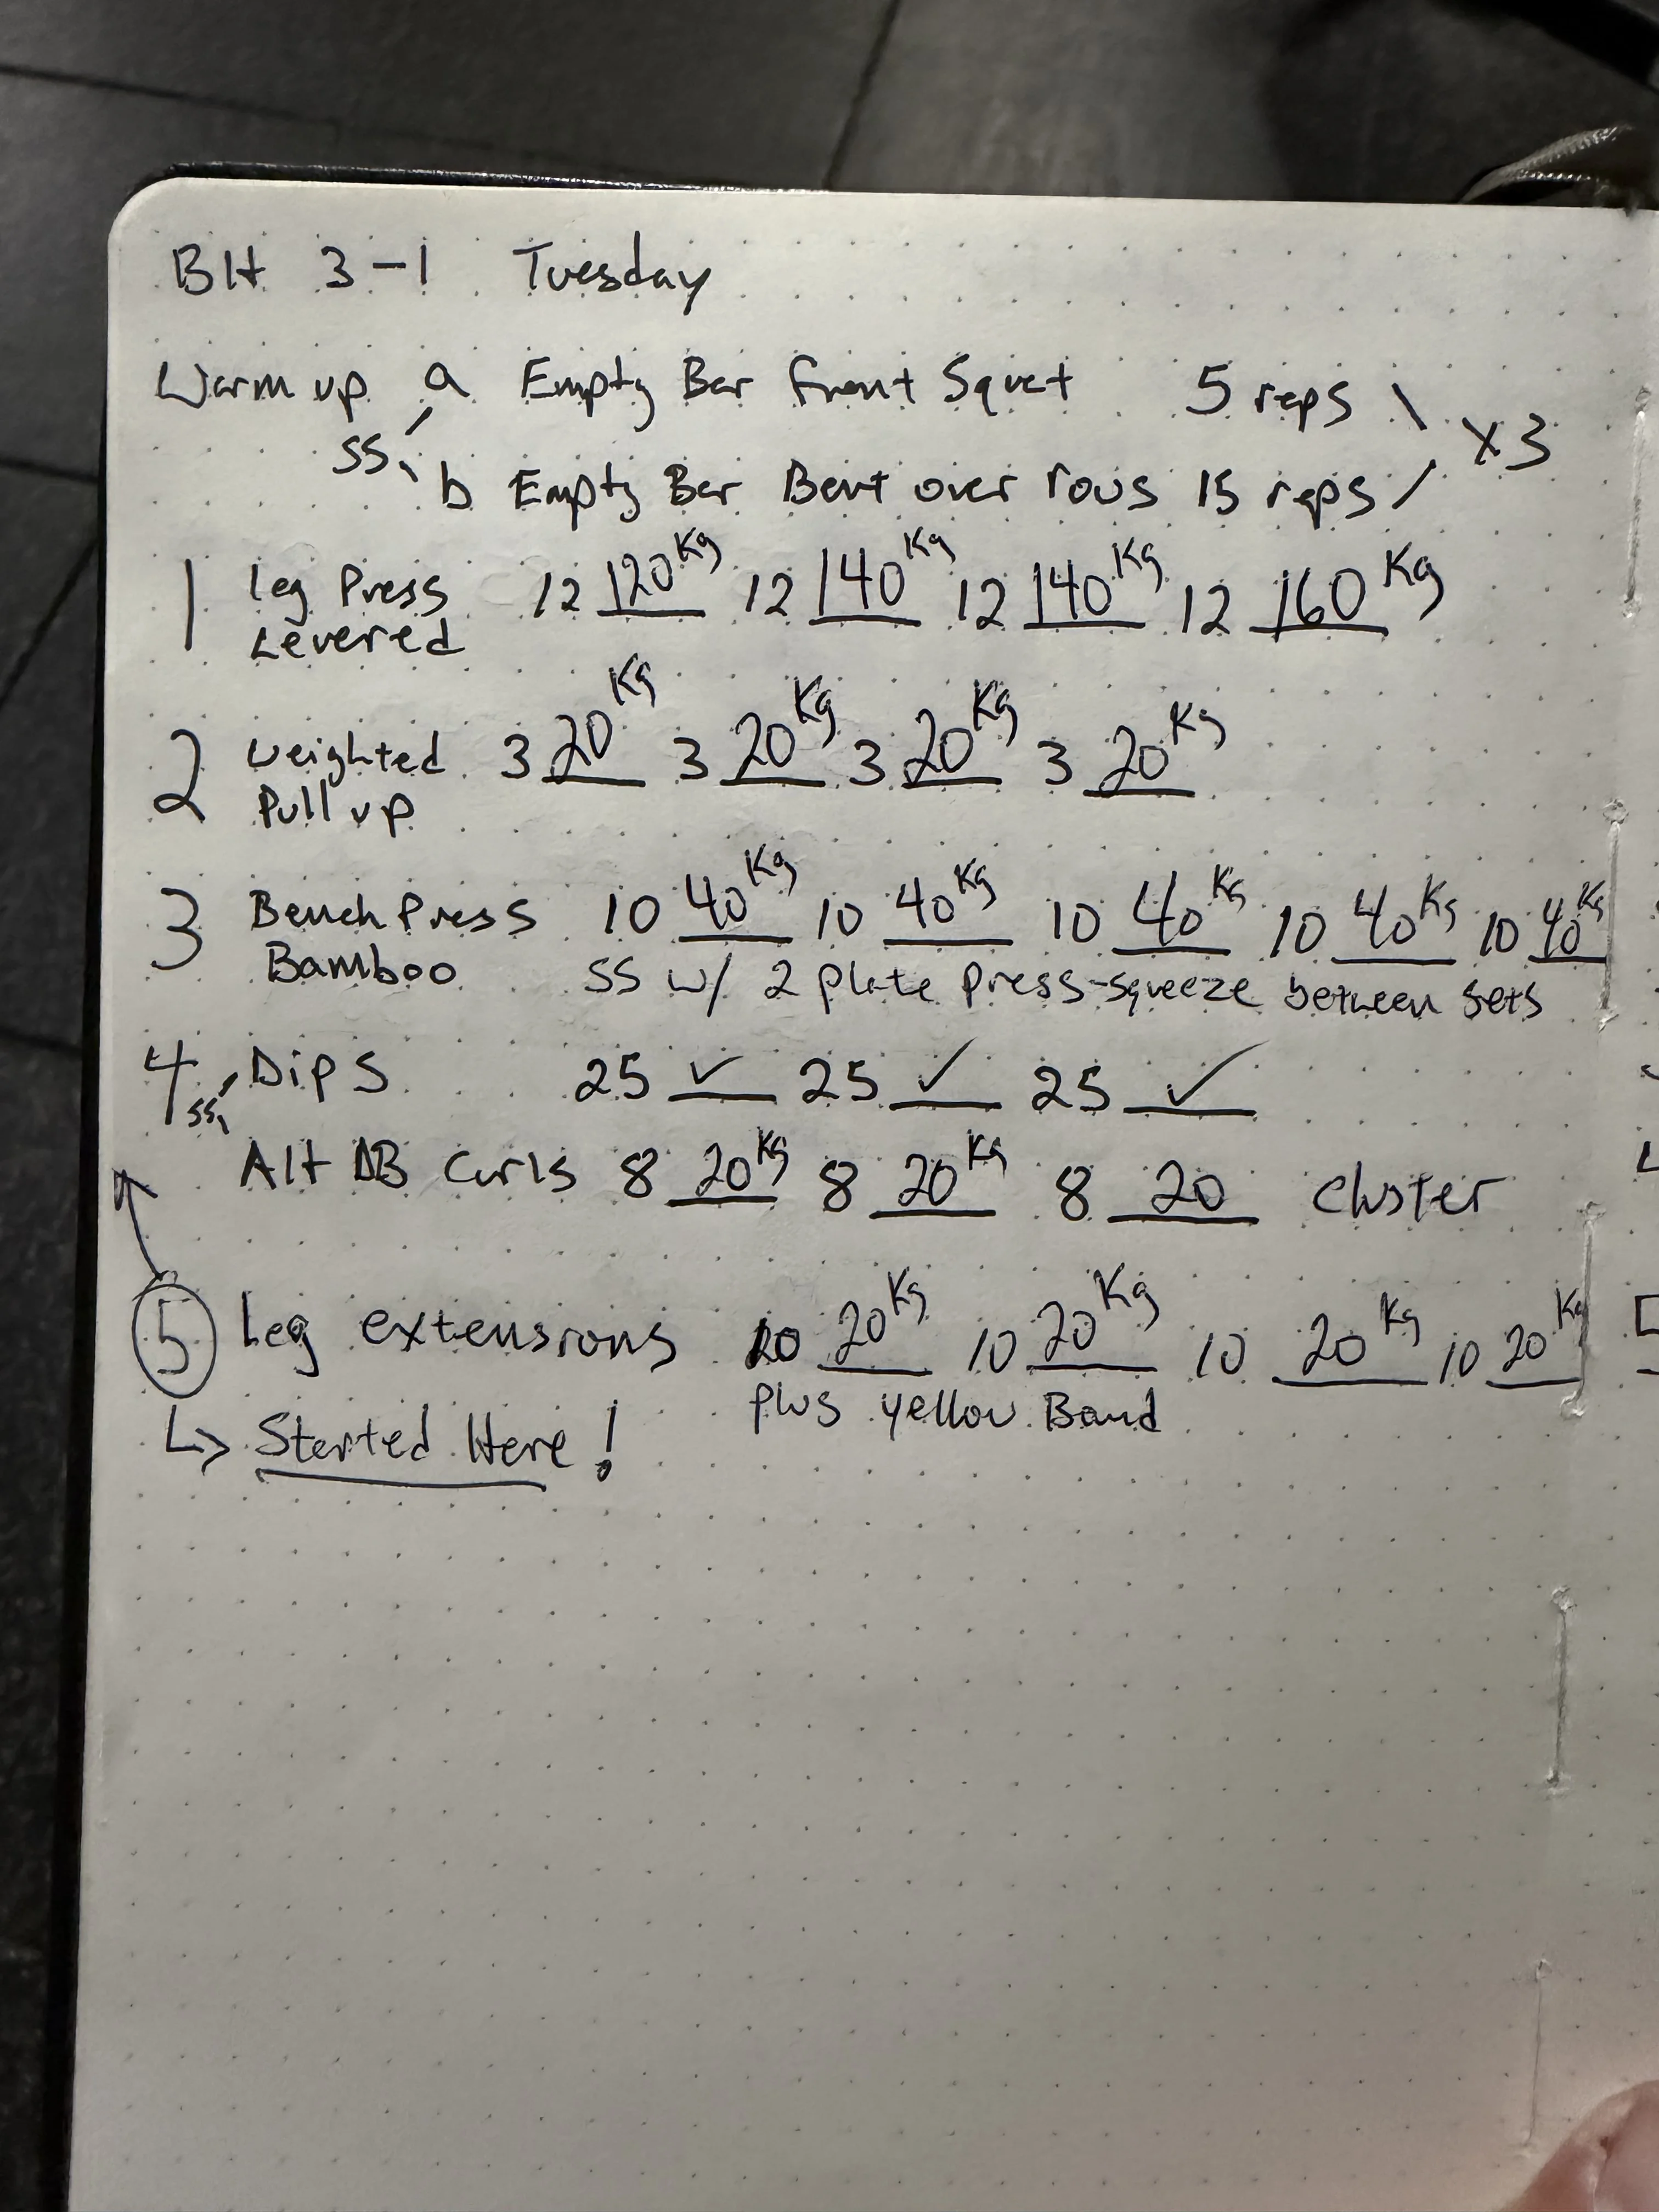 BH 3-1 Tuesday
Warm up a Empty Bar front Squat 5 reps \ x3
ss
b Empty Bar Bent over rows 15 reps /
1 Leg Press 12 120 Kg 12 140 Kg 12 140 Kg 12 160 Kg
Levered
2 weighted 3 20 Kg 3 20 Kg 3 20 Kg 3 20 Kg
Pull up
3 Bench Press 10 40 Kg 10 40 Kg 10 40 Kg 10 40 Kg 10 40 Kg
Bamboo SS w/ 2 plate press-squeeze between sets
4 Dips 25 ✓ 25 ✓ 25 ✓
ss
Alt DB Curls 8 20 Kg 8 20 Kg 8 20 cluster
5 Leg extensions 10 20 Kg 10 20 Kg 10 20 Kg 10 20 Kg
plus yellow Band
↳ Started Here!